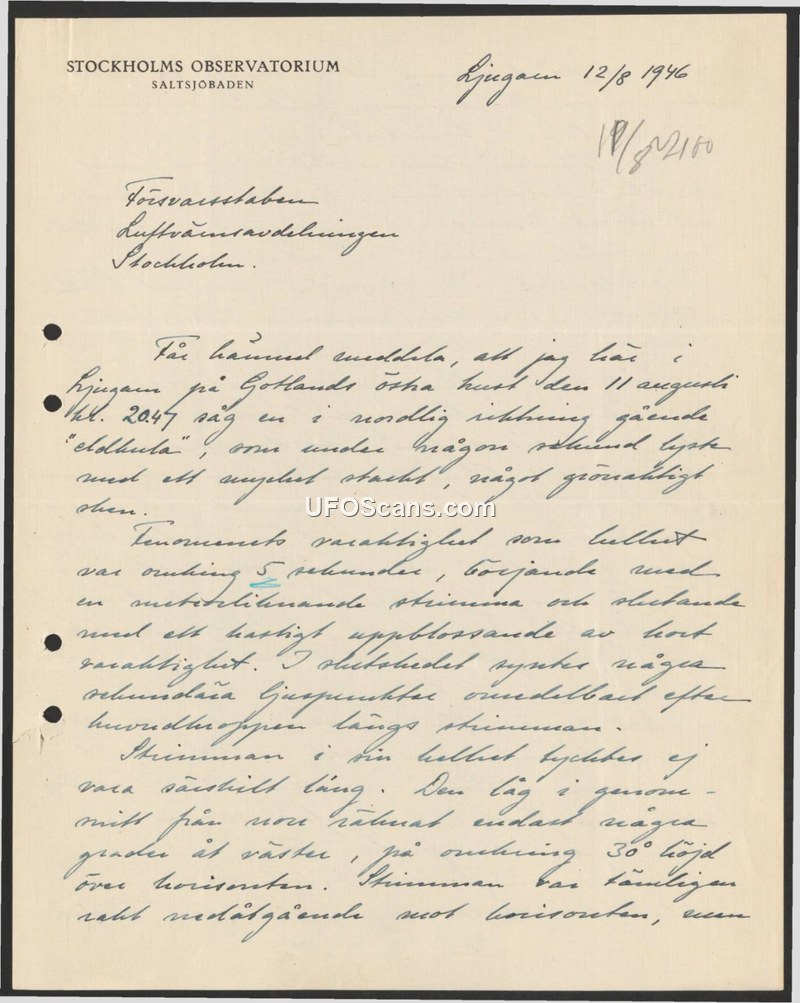 STOCKHOLMS OBSERVATORIUM
SALTSJÖBADEN
Ljugarn 12/8 1946
Försvarsstaben
Luftvärnsavdelningen
Stockholm.
Får härmed meddela, att jag här i
Ljugarn på Gotlands östra kust den 11 augusti
kl. 20.47 såg en i nordlig riktning gående
"eldkula", som under någon sekund lyste
med ett mycket starkt, något grönaktigt
sken.
UFOScans.com
Fenomenets varaktighet som helhet
var omkring 5 sekunder, börjande med
en meteorliknande strimma och slutande
med ett hastigt uppblossande av kort
varaktighet. I slutskedet syntes några
sekundära ljuspunkter omedelbart efter
huvudkroppen längs strimman.
Strimman i sin helhet tycktes ej
vara särskilt lång. Den låg i genom-
snitt från norr räknat endast några
grader åt väster, på omkring 30° höjd
över horisonten. Strimman var tämligen
rakt nedåtgående mot horisonten, men